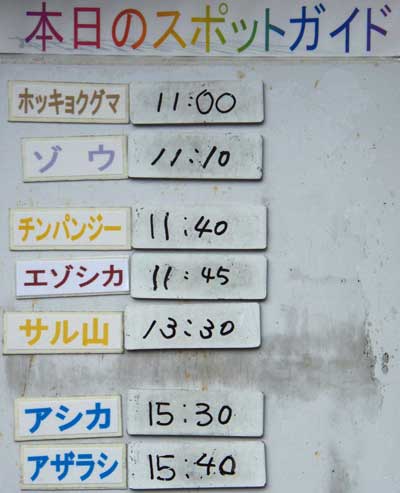 本日のスポットガイド
ホッキョクグマ 11:00
ゾウ 11:10
チンパンジー 11:40
エゾシカ 11:45
サル山 13:30
アシカ 15:30
アザラシ 15:40